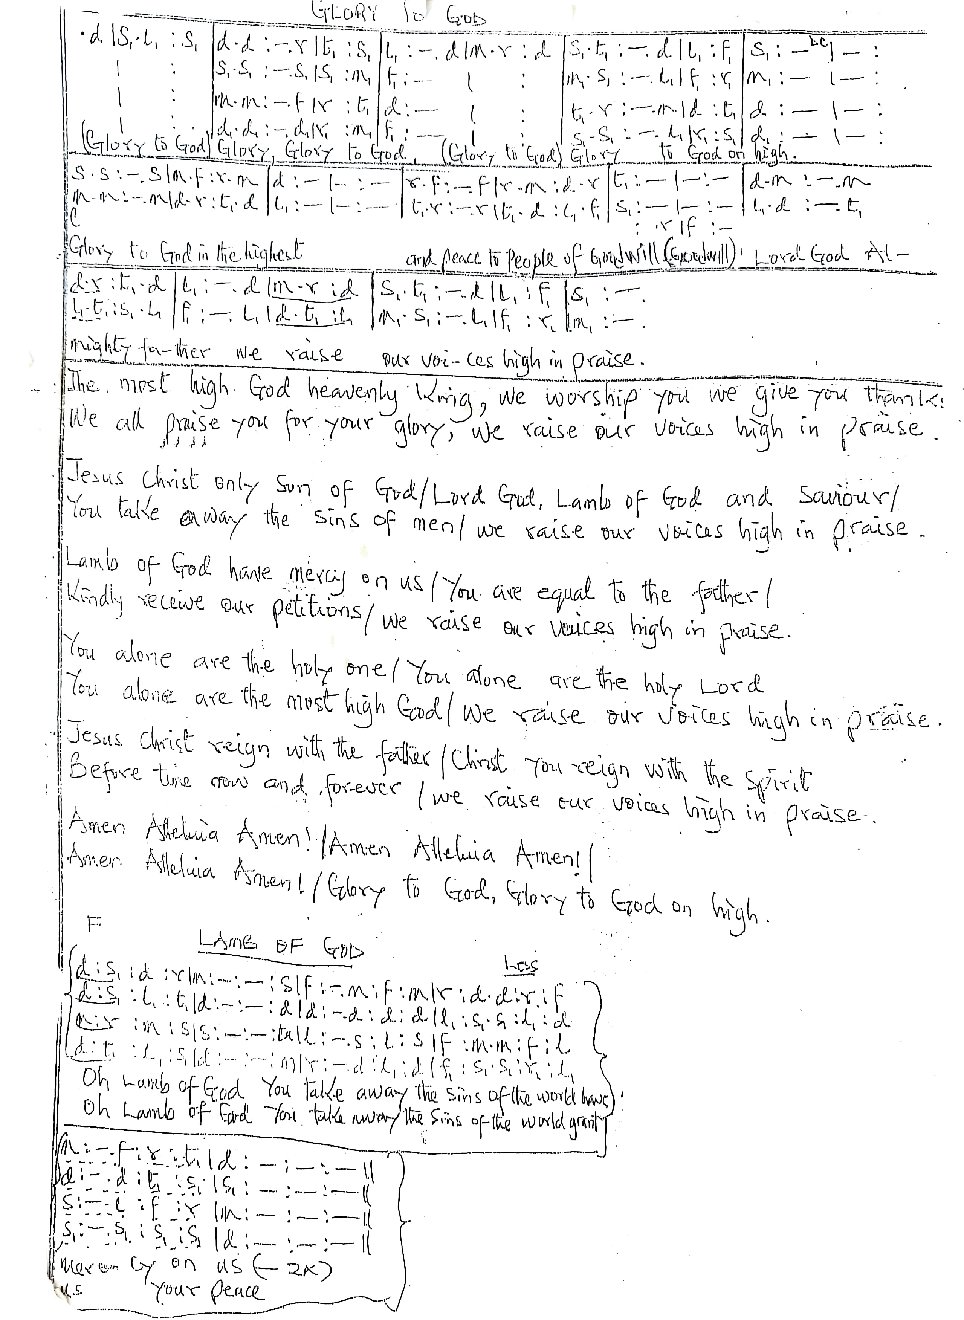 GLORY TO GOD
.d |S₁.l₁ :S₁ | d.d :-.r |t₁ :S₁ | l₁ :-.d |m.r :d | S₁.t₁ :-.d |l₁ :f₁ | S₁ :— |— :
| : | S₁.S₁ :-.S₁ |S₁ :m₁ | f₁ :— | : | m₁.S₁ :-.l₁ |f₁ :r₁ | m₁ :— |— :
| : | m.m :-.f |r :t₁ | d :— | : | t₁.r :-.m |d :t₁ | d :— |— :
| : | d.d₁ :-.d₁ |r₁ :m₁ | f₁ :— | : | S₁.S₁ :-.l₁ |r₁ :S₁ | d₁ :— |— :
(Glory to God) Glory, Glory to God. (Glory to God) Glory to God on high.
S.S :-.S |m.f :r.m | d :— |— :— | r.f :-.f |r.m :d.r | t₁ :— |— :— | d.m :-.m
m.m :-.m |d.r :t₁.d | l₁ :— |— :— | t₁.r :-.r |t₁.d :l₁.f₁ | S₁ :— |— :— | l₁.d :-.t₁
: r |f :-
Glory to God in the highest and peace to People of Goodwill (Goodwill) Lord God Al-
d.r :t₁.d | l₁ :-.d |m.r :d | S₁.t₁ :-.d |l₁ :f₁ | S₁ :—.
l₁.t₁ :S₁.l₁ | f₁ :-.l₁ |d.t₁ :l₁ | m₁.S₁ :-.l₁ |f₁ :r₁ | m₁ :—.
mighty fa-ther we raise our voi-ces high in praise.
The most high God heavenly King, we worship you we give you thanks
We all praise you for your glory, we raise our voices high in praise.
Jesus Christ only Son of God/Lord God, Lamb of God and Saviour/
You take away the sins of men/ we raise our voices high in praise.
Lamb of God have mercy on us/You are equal to the father/
Kindly receive our petitions/we raise our voices high in praise.
You alone are the holy one/You alone are the holy Lord
You alone are the most high God/We raise our voices high in praise.
Jesus Christ reign with the father/Christ you reign with the Spirit
Before time now and forever/we raise our voices high in praise.
Amen Alleluia Amen!/Amen Alleluia Amen!/
Amen Alleluia Amen!/Glory to God, Glory to God on high.
F
LAMB OF GOD
d :S₁ :d :r |m :-.:- :S |f :-.m :f :m |r :d.d :r :f
d :S₁ :l₁ :t₁ |d :-:- :d |d :-.d :d :d |l₁ :S₁.S₁ :l₁ :d
m :r :m :S |S :-:- :ta |l :-.S :l :S |f :m.m :f :l
d :t₁ :l₁ :S₁ |d :-:- :m |r :-.d :l₁ :d |f₁ :S₁.S₁ :r₁ :l₁
Oh Lamb of God You take away the Sins of the world have
Oh Lamb of God You take away the Sins of the world grant
m :-.f :r :t₁ |d :— :— :— ||
d :-.d :t₁ :S₁ |S₁ :— :— :— ||
S :-.l :f :r |m :— :— :— ||
S₁ :-.S₁ :S₁ :S₁ |d :— :— :— ||
cy on us (— 2x)
us your peace